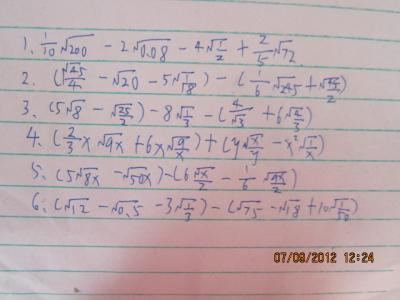 1. 1/10 √200 - 2√0.08 - 4√1/2 + 2/5 √72
2. (√45/4 - √20 - 5√1/18) - (1/6 √245 + √45/2)
3. (5√8 - √25/2) - 8√1/3 - (4/√3 + 6√2/3)
4. (2/3 x√9x + 6x√y/x) + (y√x/y - x²√1/x)
5. (5√8x - √50x) - (6√x/2 - 1/6 √9x/2)
6. (√12 - √0.5 - 3√1/3) - (√75 - √18 + 10√1/50)
07/09/2012 12:24